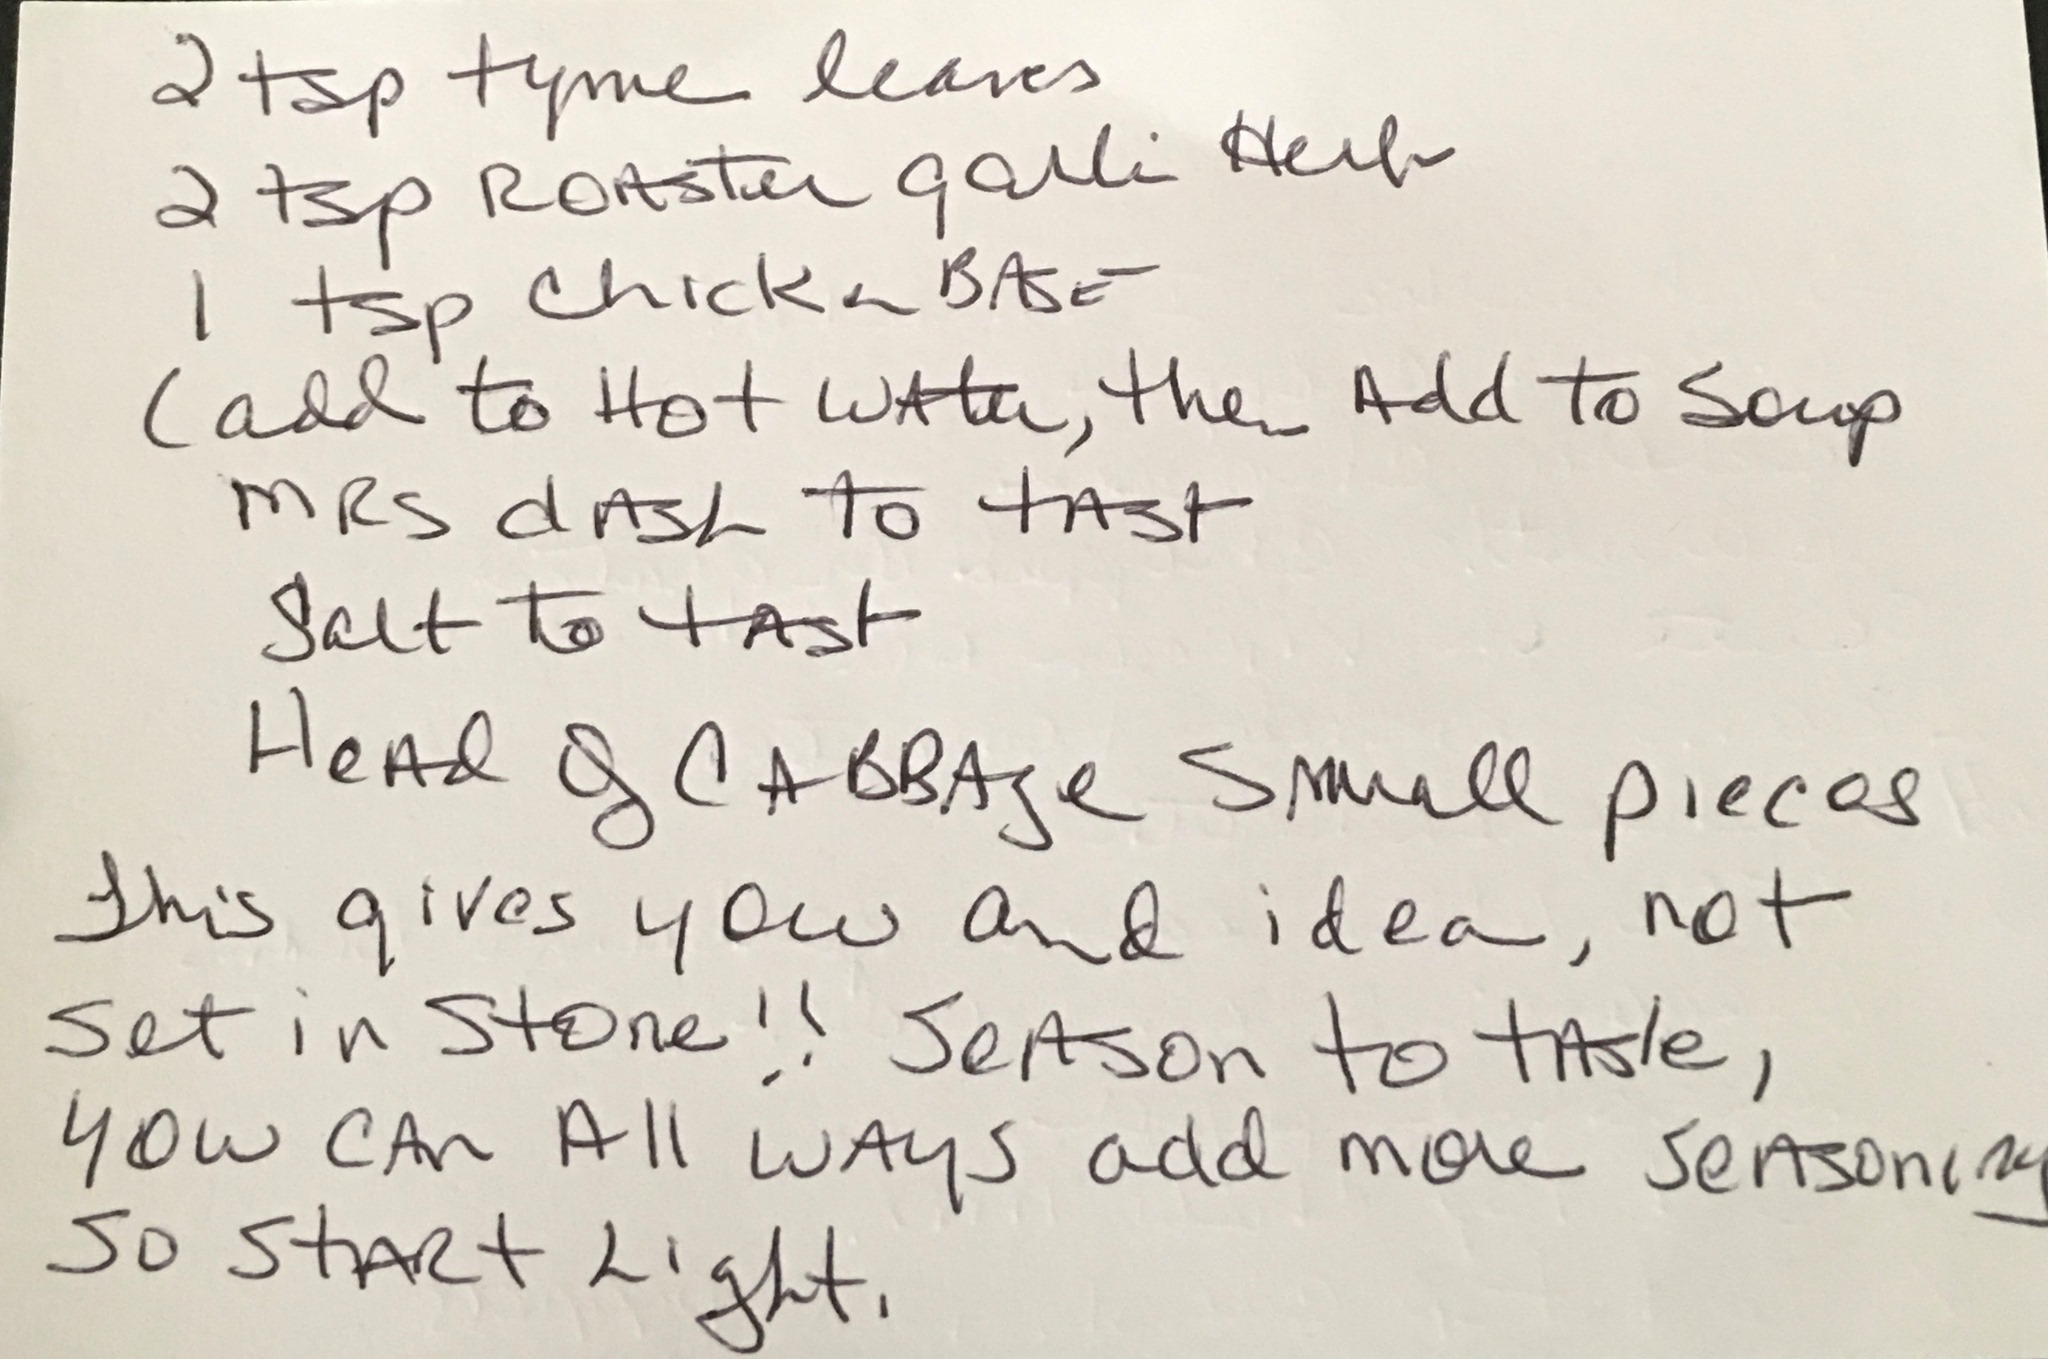 2 tsp tyme leaves
2 tsp ROASTer garli Herb
1 tsp Chickn BASE
(add to Hot WAter, then Add to Soup
MRS dASh to tASt
Salt to tASt
HeAd of CABBAge Small pieces
This gives you and idea, not
Set in Stone!! SeASon to tASte,
you CAn All WAyS add more SeASoning
So StARt Light.